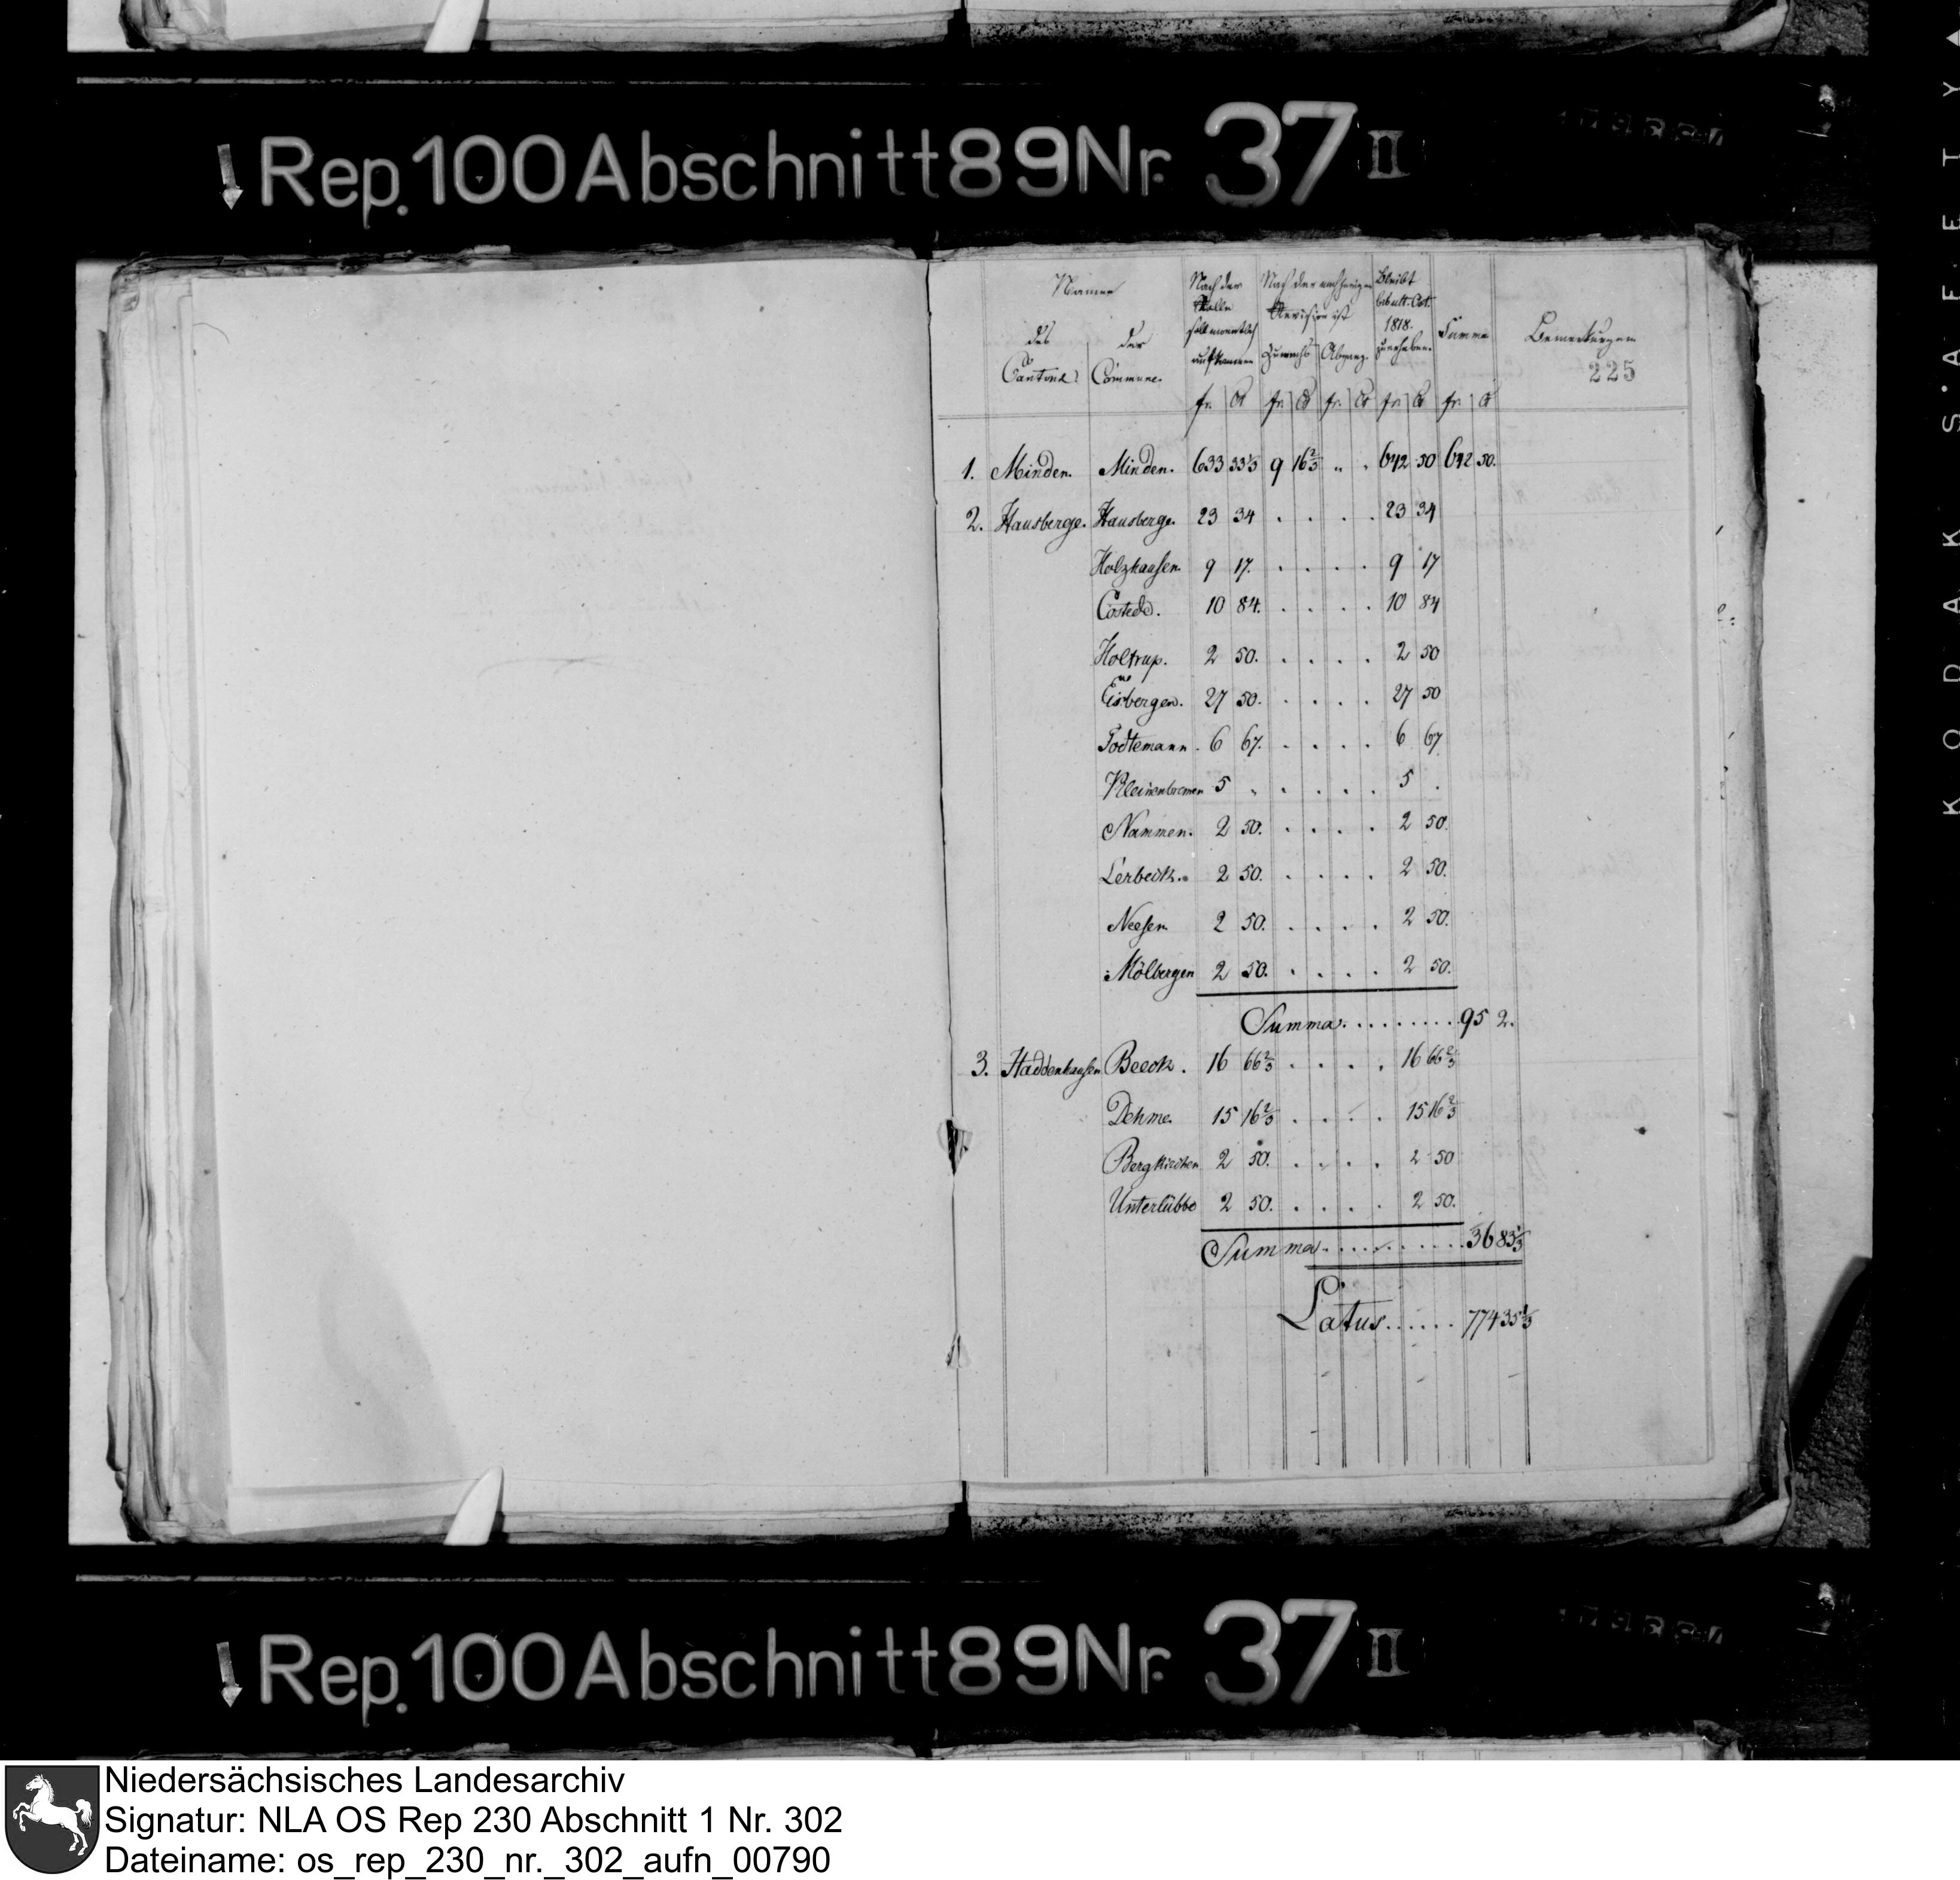 Rep. 100 Abschnitt 89 Nr. 37 II
Namen
des Cantons. der Commune.
Nach der Rolle soll monatlich aufkommen
Nach der nachherigen Revision ist
Zuwachs Abgang.
Bleibt bis ult. Oct. 1818. zu erheben.
Summa
Bemerkungen
225
fr. Ct fr. Ct fr. Ct fr. Ct fr. Ct
1. Minden. Minden. 633 33⅓ 9 16⅔ „ . 642 50 642 50.
2. Hausberge. Hausberge. 23 34 . . . . 23 34
Holzhausen. 9 17. . . . . 9 17
Costedt. 10 84. . . . . 10 84
Holtrup. 2 50. . . . . 2 50
Eisbergen. 27 50. . . . . 27 50
Todtemann. 6 67. . . . . 6 67
Kleinenbremen 5 „ . . . . 5 .
Nammen. 2 50. . . . . 2 50.
Lerbeck. 2 50. . . . . 2 50.
Neesen 2 50. . . . . 2 50.
Mölbergen 2 50. . . . . 2 50.
Summa . . . . . . . . . 95 2.
3. Haddenhausen Beeck. 16 66⅔ . . . . 16 66⅔
Dehme 15 16⅔ . . . . 15 16⅔
Bergkirchen 2 50. . . . . 2 50
Unterlübbe 2 50. . . . . 2 50.
Summa . . . . . . . . . . 36 83⅓
Latus . . . . . . 774 35⅓
Rep. 100 Abschnitt 89 Nr. 37 II
KODAK SAFETY
Niedersächsisches Landesarchiv
Signatur: NLA OS Rep 230 Abschnitt 1 Nr. 302
Dateiname: os_rep_230_nr._302_aufn_00790